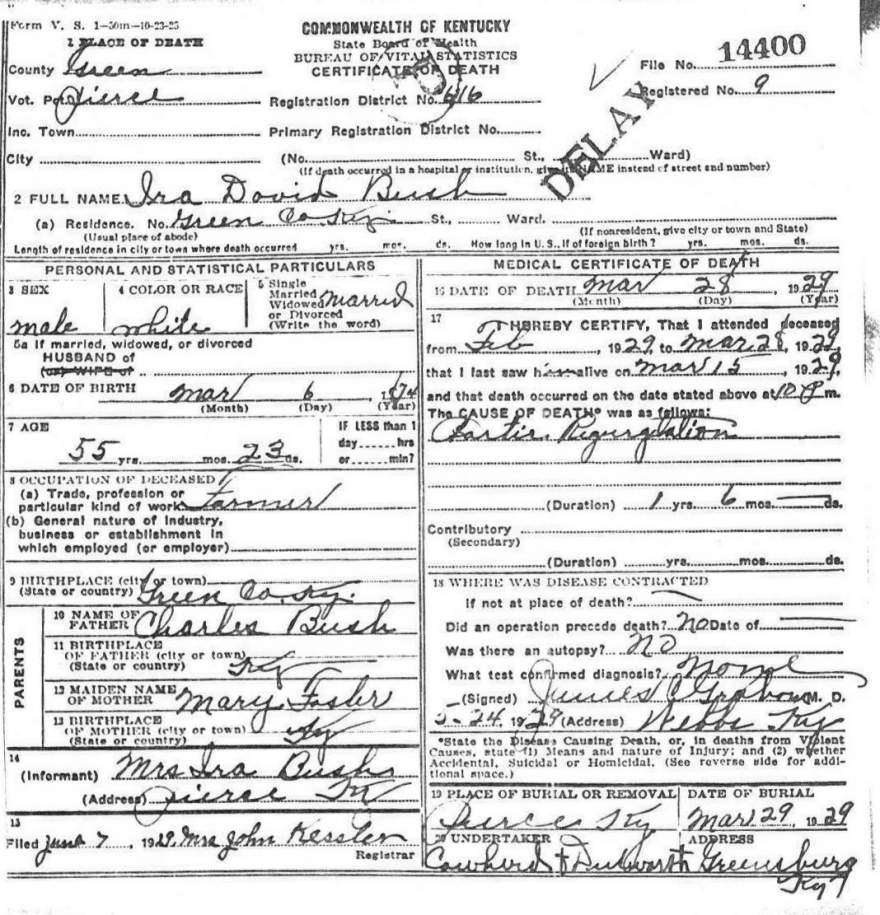 Form V. S. 1-50m-10-23-25
COMMONWEALTH OF KENTUCKY
State Board of Health
BUREAU OF VITAL STATISTICS
CERTIFICATE OF DEATH
File No. 14400
Registered No. 9
DELAY
1 PLACE OF DEATH
County Green
Vot. Pct. Pierce
Registration District No. 616
Inc. Town
Primary Registration District No.
City
(No. St., Ward)
(If death occurred in a hospital or institution, give its NAME instead of street and number)
2 FULL NAME Ira David Bush
(a) Residence. No. Green Co. Ky. St., Ward.
(Usual place of abode)
(If nonresident, give city or town and State)
Length of residence in city or town where death occurred yrs. mos. ds. How long in U. S., if of foreign birth? yrs. mos. ds.
PERSONAL AND STATISTICAL PARTICULARS
3 SEX
male
4 COLOR OR RACE
white
5 Single
Married
Widowed
or Divorced
(Write the word)
Married
5a If married, widowed, or divorced
HUSBAND of
(or) WIFE of
6 DATE OF BIRTH
Mar 6, 1874
(Month) (Day) (Year)
7 AGE
55 yrs. mos. 23 ds.
IF LESS than 1
day hrs
or min?
8 OCCUPATION OF DECEASED
(a) Trade, profession or
particular kind of work Farmer
(b) General nature of industry,
business or establishment in
which employed (or employer)
9 BIRTHPLACE (city or town)
(State or country) Green Co. Ky.
PARENTS
10 NAME OF
FATHER Charles Bush
11 BIRTHPLACE
OF FATHER (city or town)
(State or country) Ky
12 MAIDEN NAME
OF MOTHER Mary Foster
13 BIRTHPLACE
OF MOTHER (city or town)
(State or country) Ky
14
(Informant) Mrs Ira Bush
(Address) Pierce Ky
15
Filed June 7, 1929 Mrs John Kessler
Registrar
MEDICAL CERTIFICATE OF DEATH
16 DATE OF DEATH Mar 28 1929
(Month) (Day) (Year)
17
I HEREBY CERTIFY, That I attended deceased
from Feb, 1929, to Mar. 28, 1929,
that I last saw him alive on Mar 15, 1929,
and that death occurred on the date stated above at 10 P m.
The CAUSE OF DEATH* was as follows:
Regurgitation
(Duration) 1 yrs. 6 mos. — ds.
Contributory
(Secondary)
(Duration) yrs. mos. ds.
18 WHERE WAS DISEASE CONTRACTED
If not at place of death? —
Did an operation precede death? No Date of —
Was there an autopsy? No
What test confirmed diagnosis? None
(Signed) James M. D.
5-24, 1929 (Address) Webbs Ky
*State the Disease Causing Death, or, in deaths from Violent
Causes, state (1) Means and nature of Injury; and (2) whether
Accidental, Suicidal or Homicidal. (See reverse side for addi-
tional space.)
19 PLACE OF BURIAL OR REMOVAL
Pierce Ky
DATE OF BURIAL
Mar 29, 1929
20 UNDERTAKER
Cowherd &
ADDRESS
Greensburg
Ky